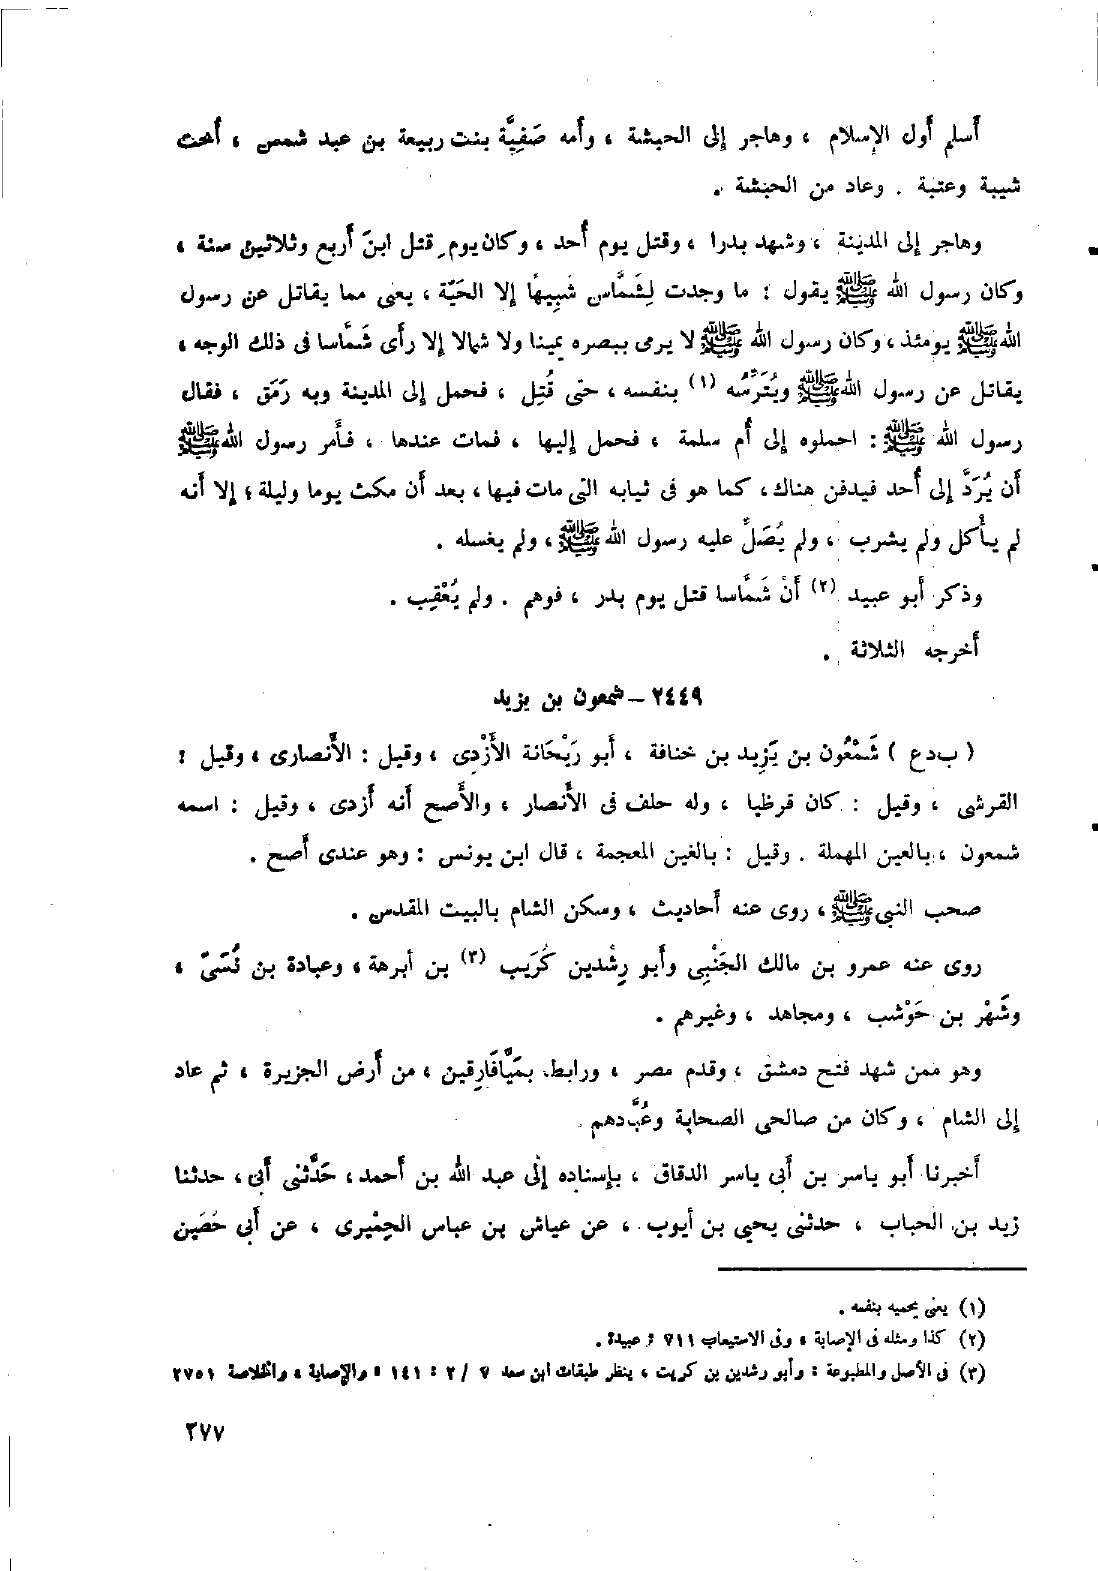 أسلم أول الإسلام ، وهاجر إلى الحبشة ، وأمه صَفِيَّة بنت ربيعة بن عبد شمس ، أُخت
شيبة وعتبة . وعاد من الحبشة .
وهاجر إلى المدينة ، وشهد بدرا ، وقتل يوم أُحد ، وكان يوم قتل ابنَ أربع وثلاثين سنة ،
وكان رسول الله ﷺ يقول : ما وجدت لِشَمَّاس شَبِيهًا إلا الجَنَّة ، يعنى مما يقاتل عن رسول
الله ﷺ يومئذ ، وكان رسول الله ﷺ لا يرمى ببصره يمينا ولا شمالا إلا رأى شَمَّاسا فى ذلك الوجه ،
يقاتل عن رسول الله ﷺ ويُتَرِّسُه (١) بنفسه ، حتى قُتِل ، فحمل إلى المدينة وبه رَمَق ، فقال
رسول الله ﷺ : احملوه إلى أُم سلمة ، فحمل إليها ، فمات عندها ، فأمر رسول الله ﷺ
أن يُرَدَّ إلى أُحد فيدفن هناك ، كما هو فى ثيابه التى مات فيها ، بعد أن مكث يوما وليلة ؛ إلا أنه
لم يأكل ولم يشرب ، ولم يُصَلِّ عليه رسول الله ﷺ ، ولم يغسله .
وذكر أبو عبيد (٢) أنَّ شَمَّاسا قتل يوم بدر ، فوهم . ولم يُعْقِب .
أخرجه الثلاثة .
٢٤٤٩ – شمعون بن يزيد
( ب د ع ) شَمْعُون بن يَزِيد بن خنافة ، أبو رَيْحَانة الأَزْدِى ، وقيل : الأنصارى ، وقيل :
القرشى ، وقيل : كان قرظيا ، وله حلف فى الأنصار ، والأصح أنه أزدى ، وقيل : اسمه
شمعون ، بالعين المهملة . وقيل : بالغين المعجمة ، قال ابن يونس : وهو عندى أصح .
صحب النبى ﷺ ، روى عنه أحاديث ، وسكن الشام بالبيت المقدس .
روى عنه عمرو بن مالك الجَنْبِى وأبو رِشْدين كُرَيب (٣) بن أبرهة ، وعبادة بن نُسَىّ ،
وشَهْر بن حَوْشب ، ومجاهد ، وغيرهم .
وهو ممن شهد فتح دمشق ، وقدم مصر ، ورابط بمَيَّافَارِقين ، من أرض الجزيرة ، ثم عاد
إلى الشام ، وكان من صالحى الصحابة وعُبَّادهم .
أخبرنا أبو ياسر بن أبى ياسر الدقاق ، بإسناده إلى عبد الله بن أحمد ، حَدَّثنى أبى ، حدثنا
زيد بن الحباب ، حدثنى يحيى بن أيوب ، عن عياش بن عباس الحِمْيرى ، عن أبى حُصَين
(١) يعنى يحميه بنفسه .
(٢) كذا ومثله فى الإصابة ، وفى الاستيعاب ٧١١ : عبيدة .
(٣) فى الأصل والمطبوعة : وأبو رشدين بن كريت ، ينظر طبقات ابن سعد ٧ / ٢ : ١٤١ ، والإصابة ، والخلاصة ٢٧٥١
٢٧٧